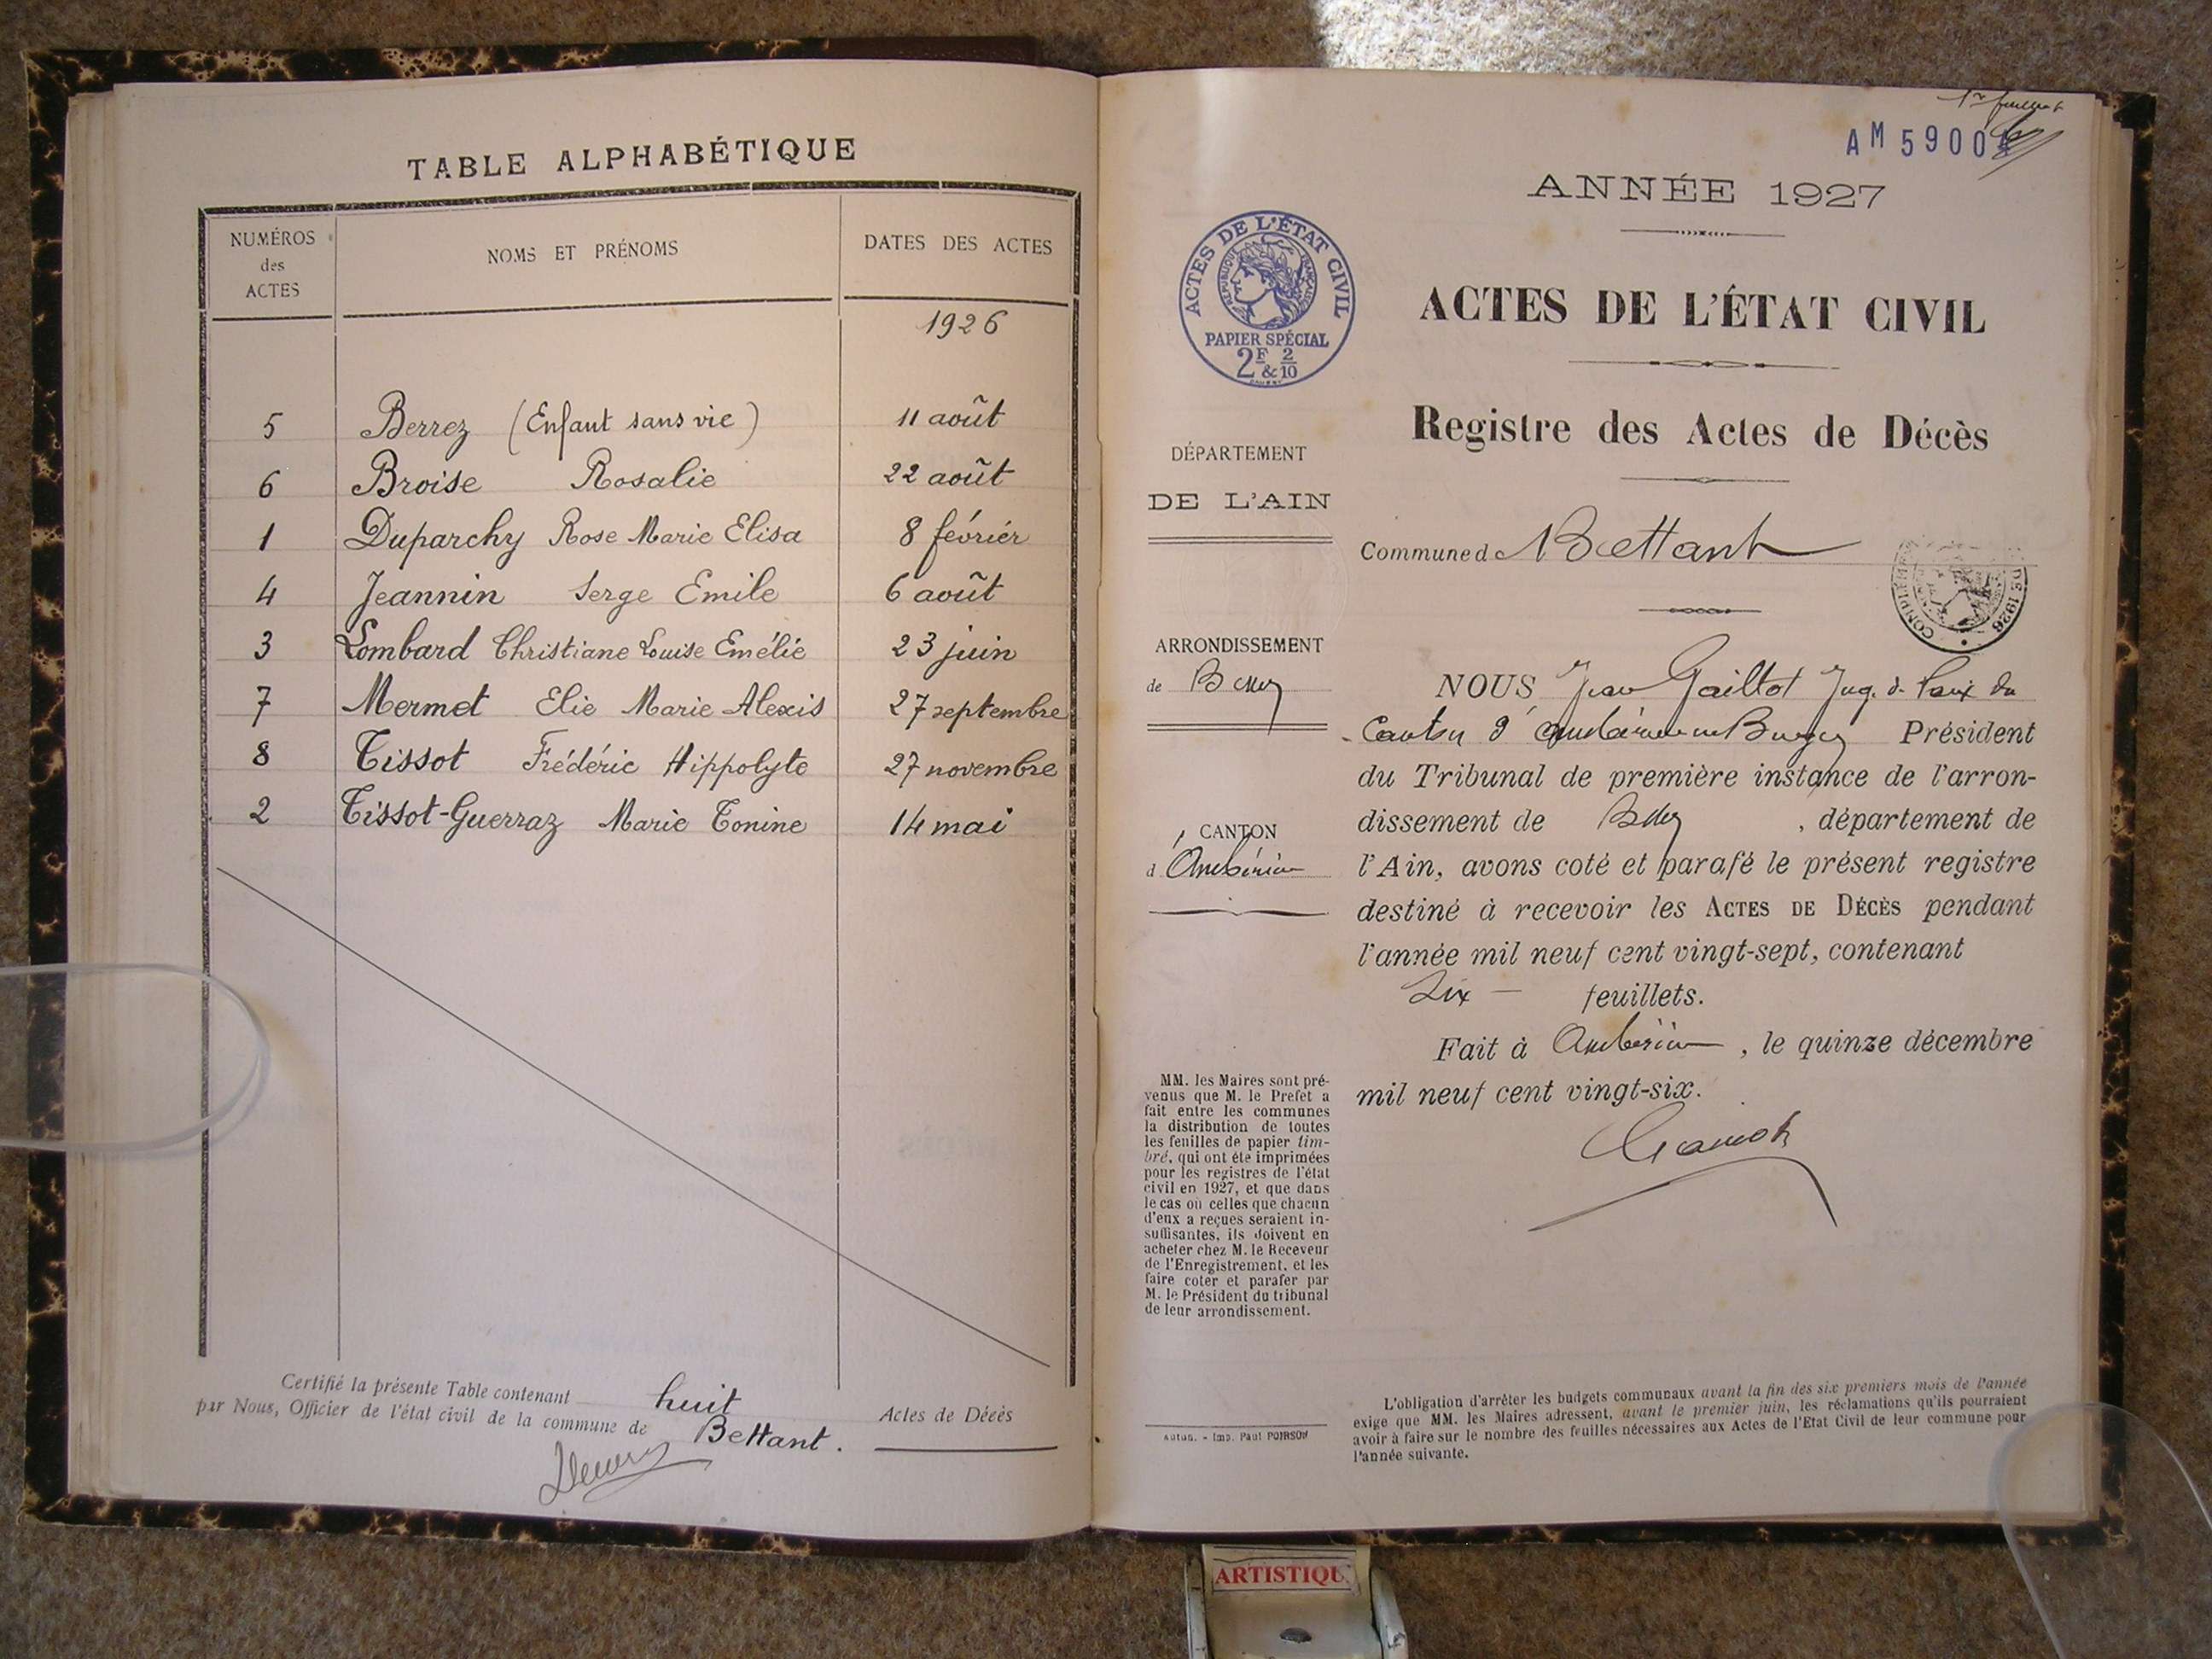 TABLE ALPHABÉTIQUE
NUMÉROS des ACTES
NOMS ET PRÉNOMS
DATES DES ACTES
1926
5 Berrez (Enfant sans vie) 11 août
6 Broise Rosalie 22 août
1 Duparchy Rose Marie Elisa 8 février
4 Jeannin Serge Emile 6 août
3 Lombard Christiane Louise Emélie 23 juin
7 Mermet Elie Marie Alexis 27 septembre
8 Tissot Frédéric Hippolyte 27 novembre
2 Tissot-Guerraz Marie Tonine 14 mai
Certifié la présente Table contenant huit Actes de Décès
par Nous, Officier de l'état civil de la commune de Bettant.
1er feuillet
AM 5900
ANNÉE 1927
ACTES DE L'ÉTAT CIVIL
RÉPUBLIQUE FRANÇAISE
PAPIER SPÉCIAL
2F & 2/10
ACTES DE L'ÉTAT CIVIL
Registre des Actes de Décès
DÉPARTEMENT
DE L'AIN
Commune de Bettant
DE 1926
ARRONDISSEMENT
de Belley
CANTON
d'Ambérieu
NOUS Jean Gailtot Juge de Paix du
Canton d'Ambérieu en Bugey Président
du Tribunal de première instance de l'arron-
dissement de Belley, département de
l'Ain, avons coté et parafé le présent registre
destiné à recevoir les ACTES DE DÉCÈS pendant
l'année mil neuf cent vingt-sept, contenant
Six feuillets.
Fait à Ambérieu, le quinze décembre
mil neuf cent vingt-six.
MM. les Maires sont pré-
venus que M. le Prefet a
fait entre les communes
la distribution de toutes
les feuilles de papier tim-
bré, qui ont été imprimées
pour les registres de l'état
civil en 1927, et que dans
le cas où celles que chacun
d'eux a reçues seraient in-
suffisantes, ils doivent en
acheter chez M. le Receveur
de l'Enregistrement, et les
faire coter et parafer par
M. le Président du tribunal
de leur arrondissement.
Autun. - Imp. Paul POIRSON
L'obligation d'arrêter les budgets communaux avant la fin des six premiers mois de l'année
exige que MM. les Maires adressent, avant le premier juin, les réclamations qu'ils pourraient
avoir à faire sur le nombre des feuilles nécessaires aux Actes de l'Etat Civil de leur commune pour
l'année suivante.
ARTISTIQU